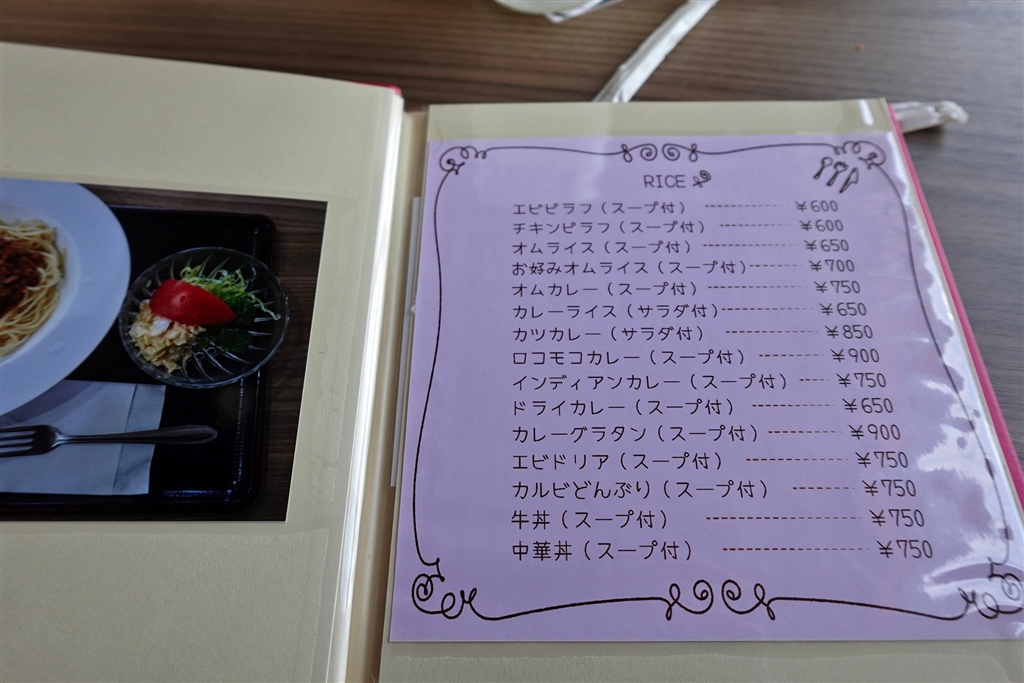 RICE
エビピラフ(スープ付) ¥600
チキンピラフ(スープ付) ¥600
オムライス(スープ付) ¥650
お好みオムライス(スープ付) ¥700
オムカレー(スープ付) ¥750
カレーライス(サラダ付) ¥650
カツカレー(サラダ付) ¥850
ロコモコカレー(スープ付) ¥900
インディアンカレー(スープ付) ¥750
ドライカレー(スープ付) ¥650
カレーグラタン(スープ付) ¥900
エビドリア(スープ付) ¥750
カルビどんぶり(スープ付) ¥750
牛丼(スープ付) ¥750
中華丼(スープ付) ¥750